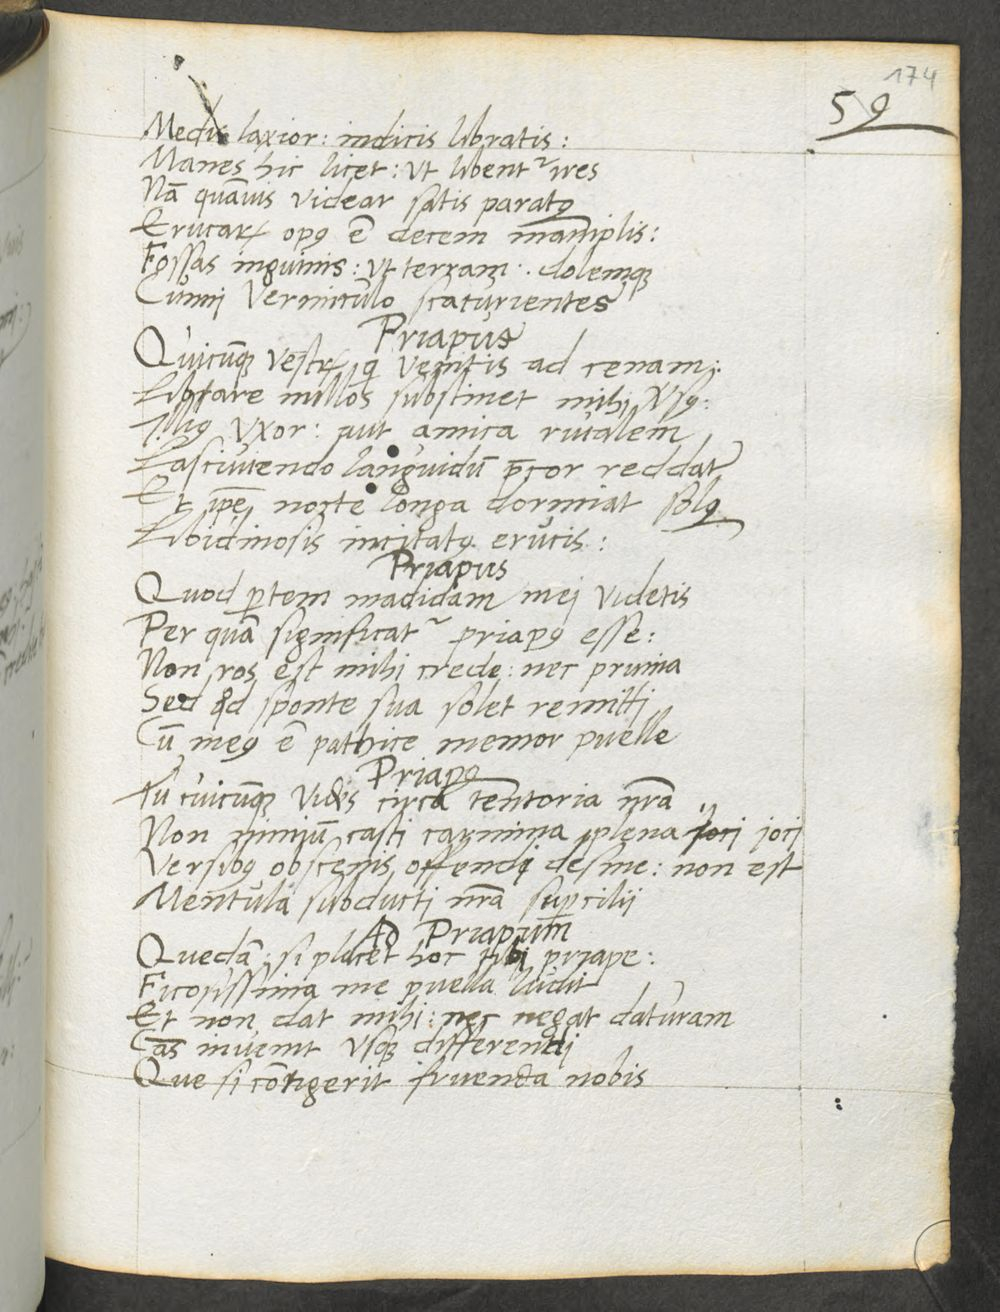 174
59
Medis laxior: indicis libratis:
Manes hic licet: ut libentʳ ires
Nā quāuis videar satis paratꝰ
Erucaꝝ opꝰ ē decem maniplis:
Fossas inguinis: ut terram: dolemꝗ
Cunni Vermiculo scaturientes
Priapus
Quicūꝗ vestꝝ ꝗ venitis ad cenam:
Librare nullos substinet mihi
Illiꝰ Vxor: aut amica riualem
Lasciuiendo languidū p̄cor reddat
Et ip̄e nocte longa dormiat solꝰ
Libidinosis incitatꝰ erucis:
Priapus
Quod ꝑtem madidam mei videtis
Per quā significatʳ priapꝰ esse:
Non ros est mihi crede: nec pruina
Sed qd sponte sua solet remitti
Cū meꝰ ē pathice memor puelle
Priapꝰ
Tu cuicūꝗ Vides circa tentoria nr̄a
Non nimiū casti carmina plena ioci
Versibꝰ obscenis offendi desine: non est
Mentula subducti nr̄a suꝑcilii
Ad Priapum
Quedā si placet hoc tibi priape:
Ficosissima me puella ludit
Et non dat mihi: nec negat daturam
Cās inuenit Vsꝗ differendi
Que si cōtigerit fruenda nobis